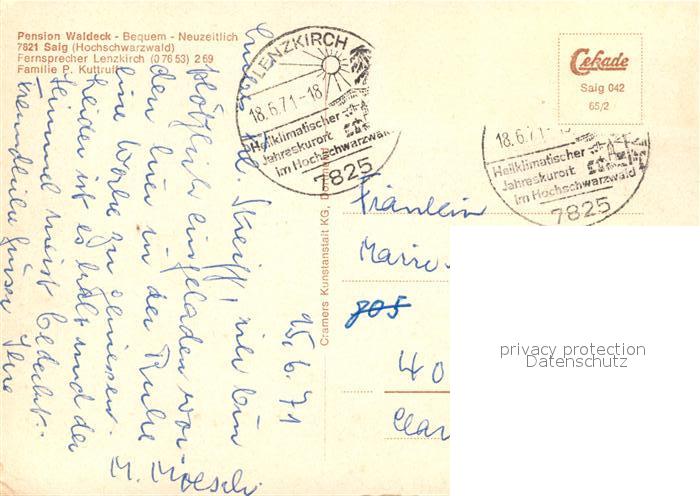 Pension Waldeck - Bequem - Neuzeitlich
7821 Saig (Hochschwarzwald)
Fernsprecher Lenzkirch (0 76 53) 2 69
Familie P. Kuttruff
LENZKIRCH
18.6.71-18
Heilklimatischer
Jahreskurort
im Hochschwarzwald
7825
Cekade
Saig 042
65/2
18.6.71-18
Heilklimatischer
Jahreskurort
im Hochschwarzwald
7825
Cramers Kunstanstalt KG, Dortmund
15.6.71
hier bin
plötzlich eingeladen wor
den hier in der Ruhe
eine Woche zu geniessen.
Leider ist es kalt und der
Himmel meist bedeckt.
Freundliche Grüsse Ihre
M.
Fräulein
805
40
privacy protection
Datenschutz